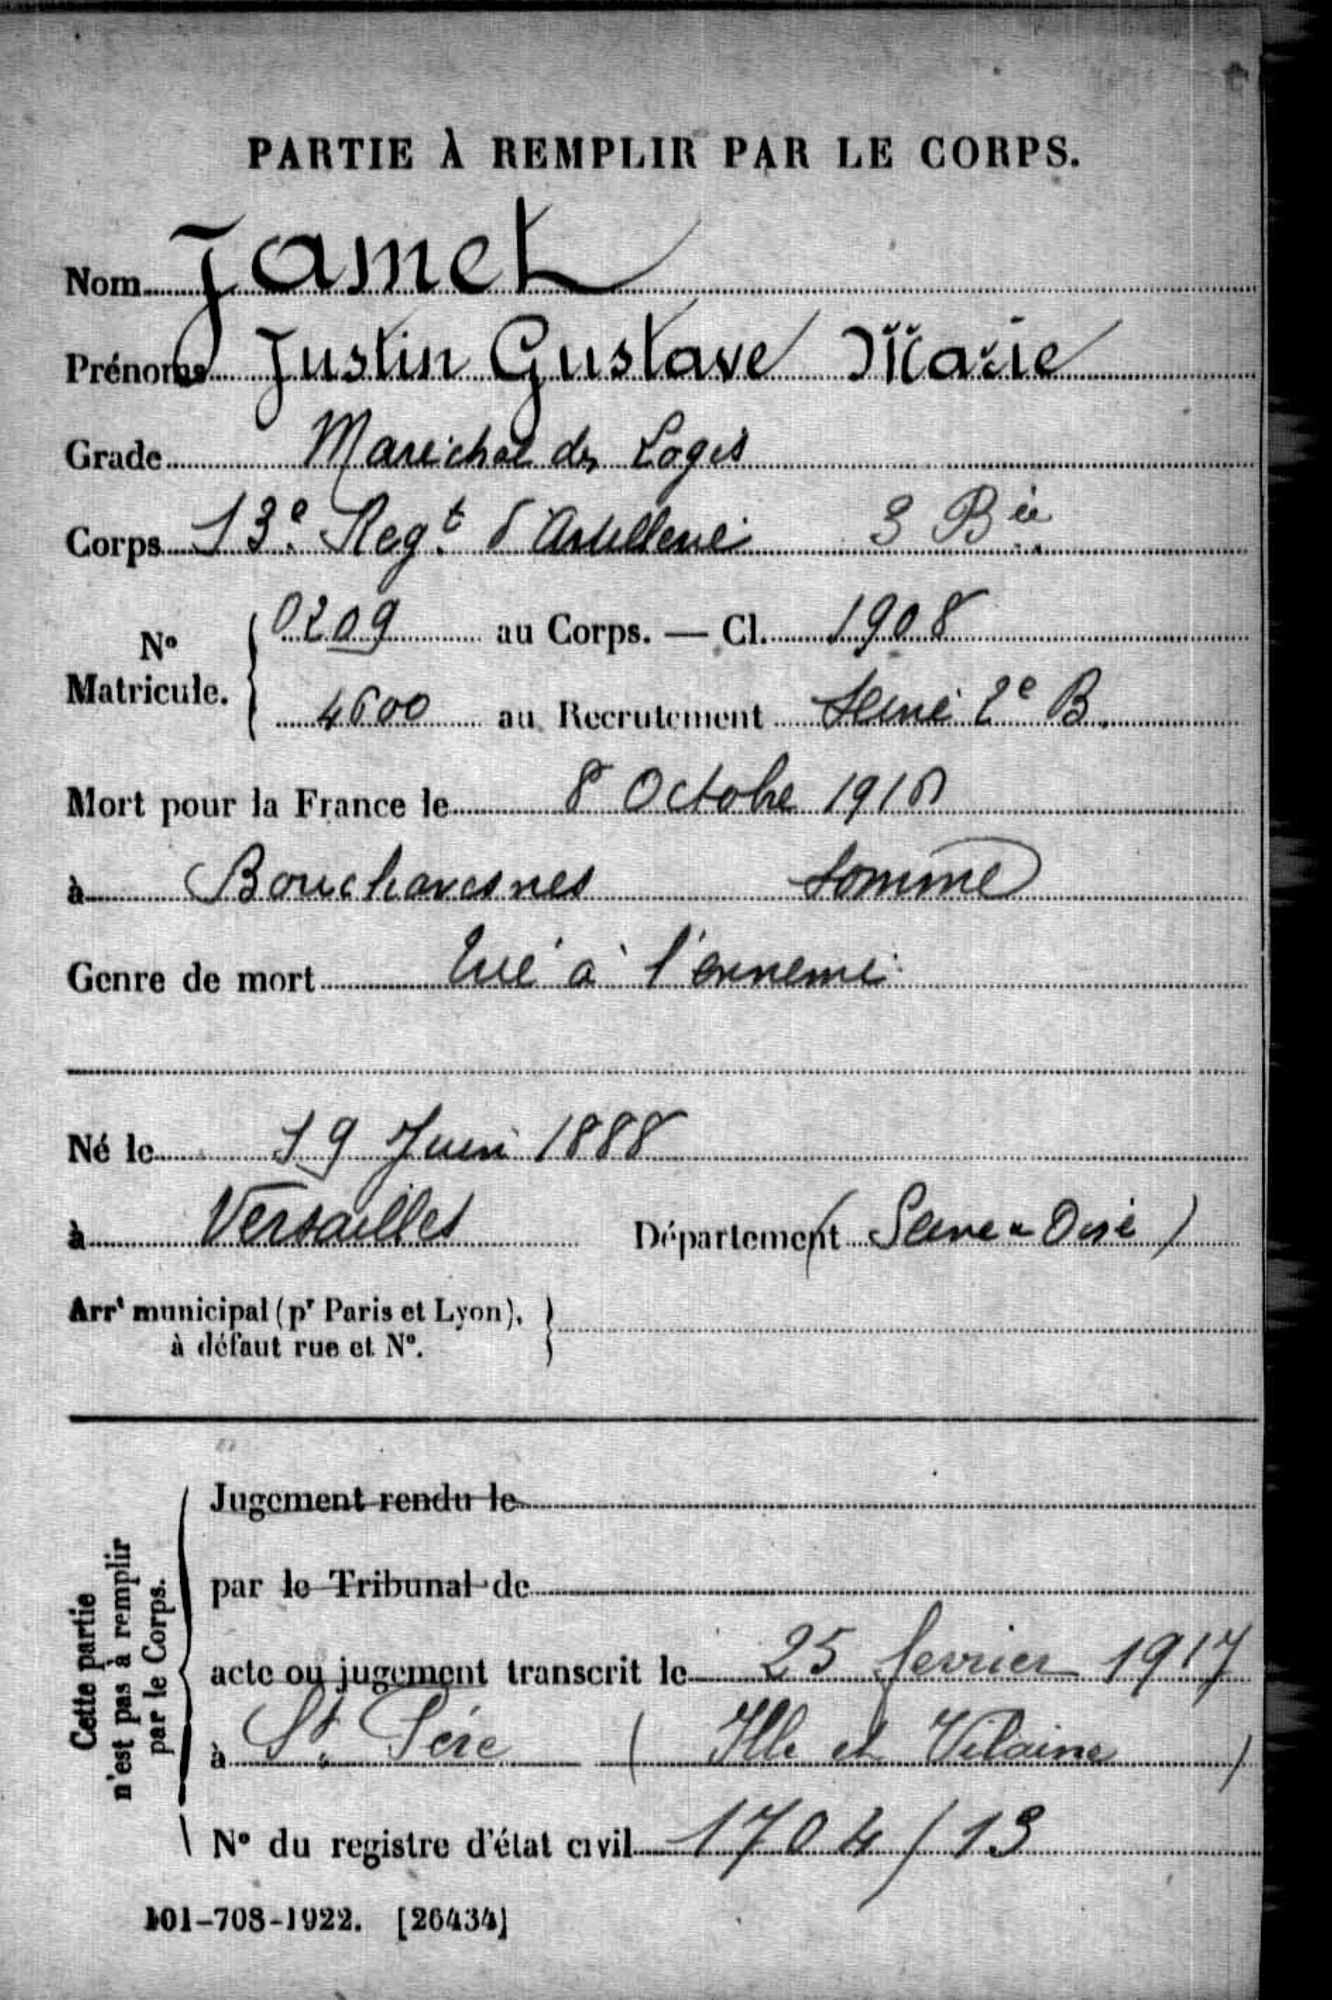 PARTIE À REMPLIR PAR LE CORPS.
Nom Jamet
Prénoms Justin Gustave Marie
Grade Maréchal des Logis
Corps 13e Regt d'Artillerie 3 Bie
No Matricule. 0209 au Corps. — Cl. 1908
4600 au Recrutement Seine 2e B.
Mort pour la France le 8 Octobre 1916
à Bouchavesnes Somme
Genre de mort Tué à l'ennemi
Né le 19 Juin 1888
à Versailles Département (Seine & Oise)
Arrt municipal (pr Paris et Lyon),
à défaut rue et No.
Cette partie
n'est pas à remplir
par le Corps.
Jugement rendu le
par le Tribunal de
acte ou jugement transcrit le 25 fevrier 1917
à St. Père (Ille et Vilaine)
No du registre d'état civil 1704/13
101-708-1922. [26434]